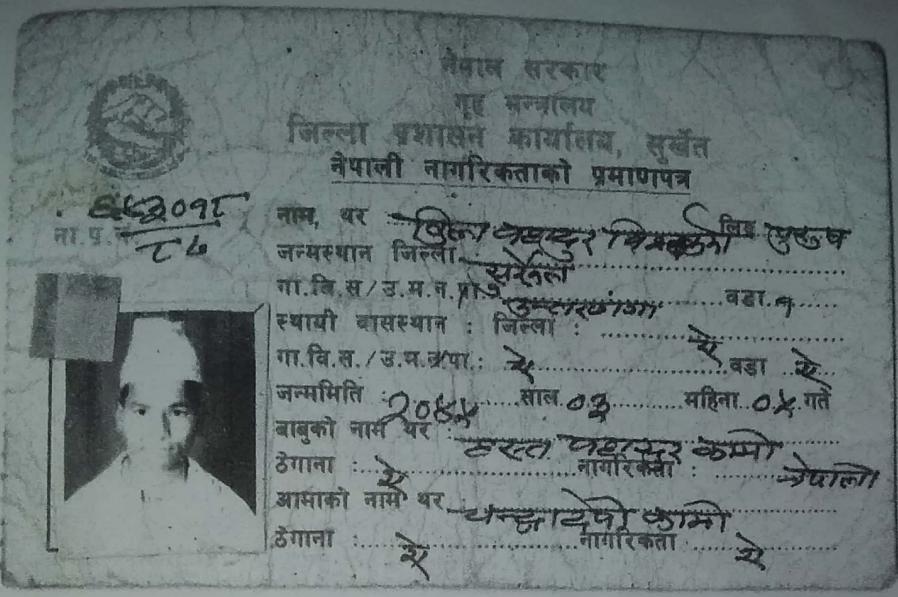 नेपाल सरकार
गृह मन्त्रालय
जिल्ला प्रशासन कार्यालय, सुर्खेत
नेपाली नागरिकताको प्रमाणपत्र
ना.प.नं.
नाम, थर बहादुर लिङ्ग पुरुष
जन्मस्थान जिल्ला सुर्खेत
गा.वि.स/उ.म.न.पा. वडा १
स्थायी वासस्थान : जिल्ला : ऐ
गा.वि.स./उ.म.न.पा.: ऐ वडा ऐ
जन्ममिति : साल ०३ महिना ०५ गते
बाबुको नाम थर : हस्त बहादुर कामी
ठेगाना : ऐ नागरिकता : नेपाली
आमाको नाम थर : कामी
ठेगाना : ऐ नागरिकता ऐ